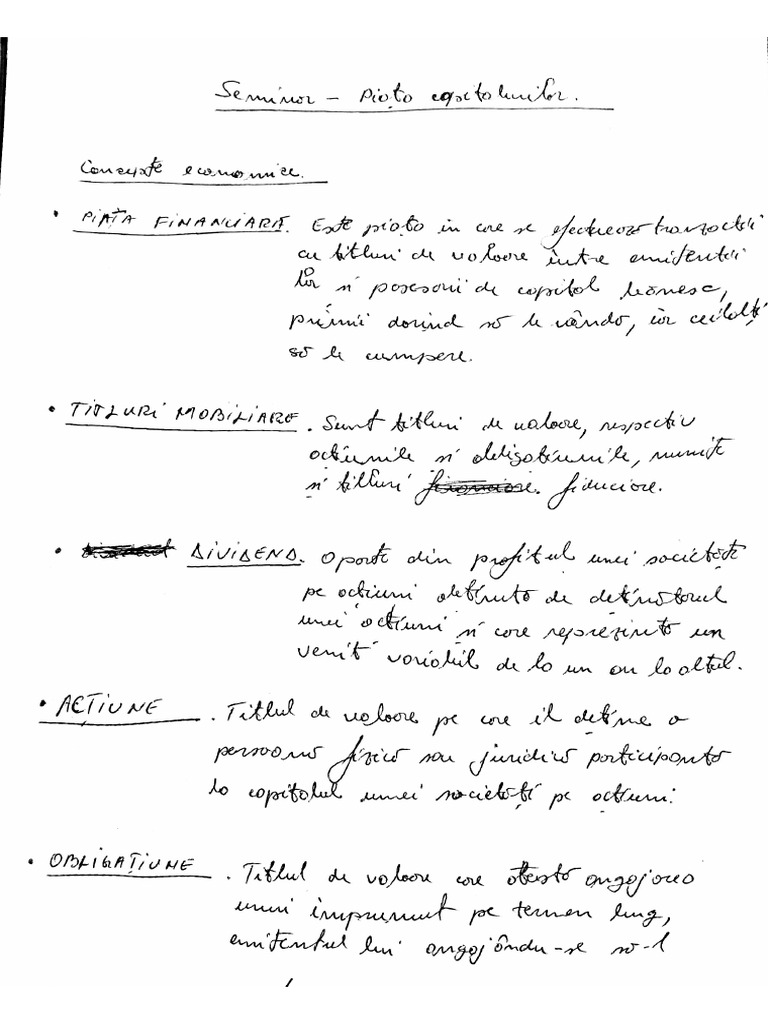 Seminar - Piața capitalurilor.
Concepte economice.
• PIAȚA FINANCIARĂ. Este piața în care se efectuează tranzacții
cu titluri de valoare între emitenții
lor și posesorii de capital bănesc,
primii dorind să le vândă, iar ceilalți
să le cumpere.
• TITLURI MOBILIARE. Sunt titluri de valoare, respectiv
acțiunile și obligațiunile, numite
și titluri financiare. fiduciare.
• DIVIDEND. O parte din profitul unei societăți
pe acțiuni obținută de deținătorul
unei acțiuni și care reprezintă un
venit variabil de la un an la altul.
• ACȚIUNE. Titlul de valoare pe care îl deține o
persoană fizică sau juridică participantă
la capitalul unei societăți pe acțiuni.
• OBLIGAȚIUNE. Titlul de valoare care atestă angajarea
unui împrumut pe termen lung,
emitentul lui angajându-se să-l